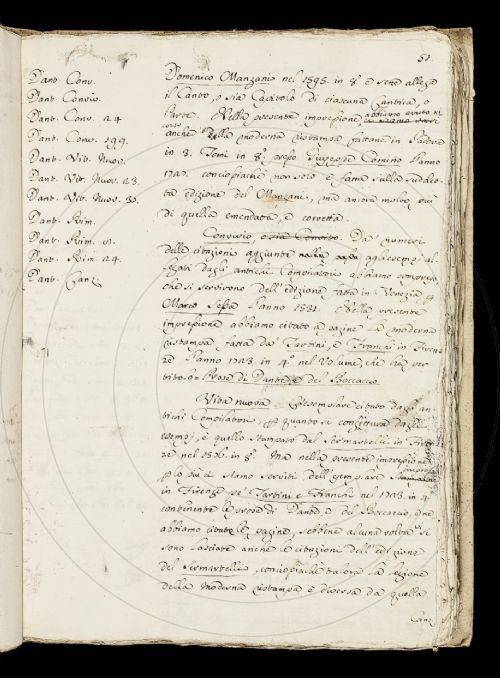 51
Dant. Conv.
Dant. Conviv.
Dant. Conv. 24
Dant. Conv. 199.
Dant. Vit. Nuov.
Dant. Vit. Nuov. 23.
Dant. Vit. Nuov. 30.
Dant. Rim.
Dant. Rim. 11.
Dant. Rim. 24.
Dant. Canz.
Domenico Manzani nel 1595. in 8.° e sene allega
il Canto, o sia Capitolo di ciascuna Cantica, o
Parte. Nella presente impressione abbiamo avuto
anche la moderna ristampa fattane in Padova
in 3. Tomi in 8.° presso Giuseppe Comino l'anno
1727. conciopiachè non solo è fatta sulla sudalet-
ta edizione del Manzani, ma ancora molto più
di quella emendata, e corretta.
Convivio, o sia Convito. Da' numeri
delle citazioni aggiunte agli esempj al-
legati dagli antichi Compilatori abbiamo compreso,
che si servirono dell'edizione fatta in Venezia per
Marco Sessa l'anno 1531. Nella presente
impressione abbiamo citato a pagine la moderna
ristampa fatta da' Tartini, e Franchi in Firen-
ze l'anno 1723. in 4.° nel Volume, che ha per
titolo: Prose di Dante, e del Boccaccio.
Vita nuova. L'esemplare citato dagli an-
tichi Compilatori, per quanto si conghiettura dagli
esempj, è quello stampato dal Sermartelli in Firen-
ze nel 1576. in 8.° Ma nella presente impressione
per lo più ci siamo serviti dell'esemplare
in Firenze pe' Tartini e Franchi nel 1723. in 4.°
contenente le prose di Dante, e del Boccaccio, e ne
abbiamo citate le pagine, sebbene alcuna volta vi si
sono lasciate anche le citazioni dell'edizione
del Sermartelli, conciopiachè talora la lezione
della moderna ristampa è diversa da quella
Canz.